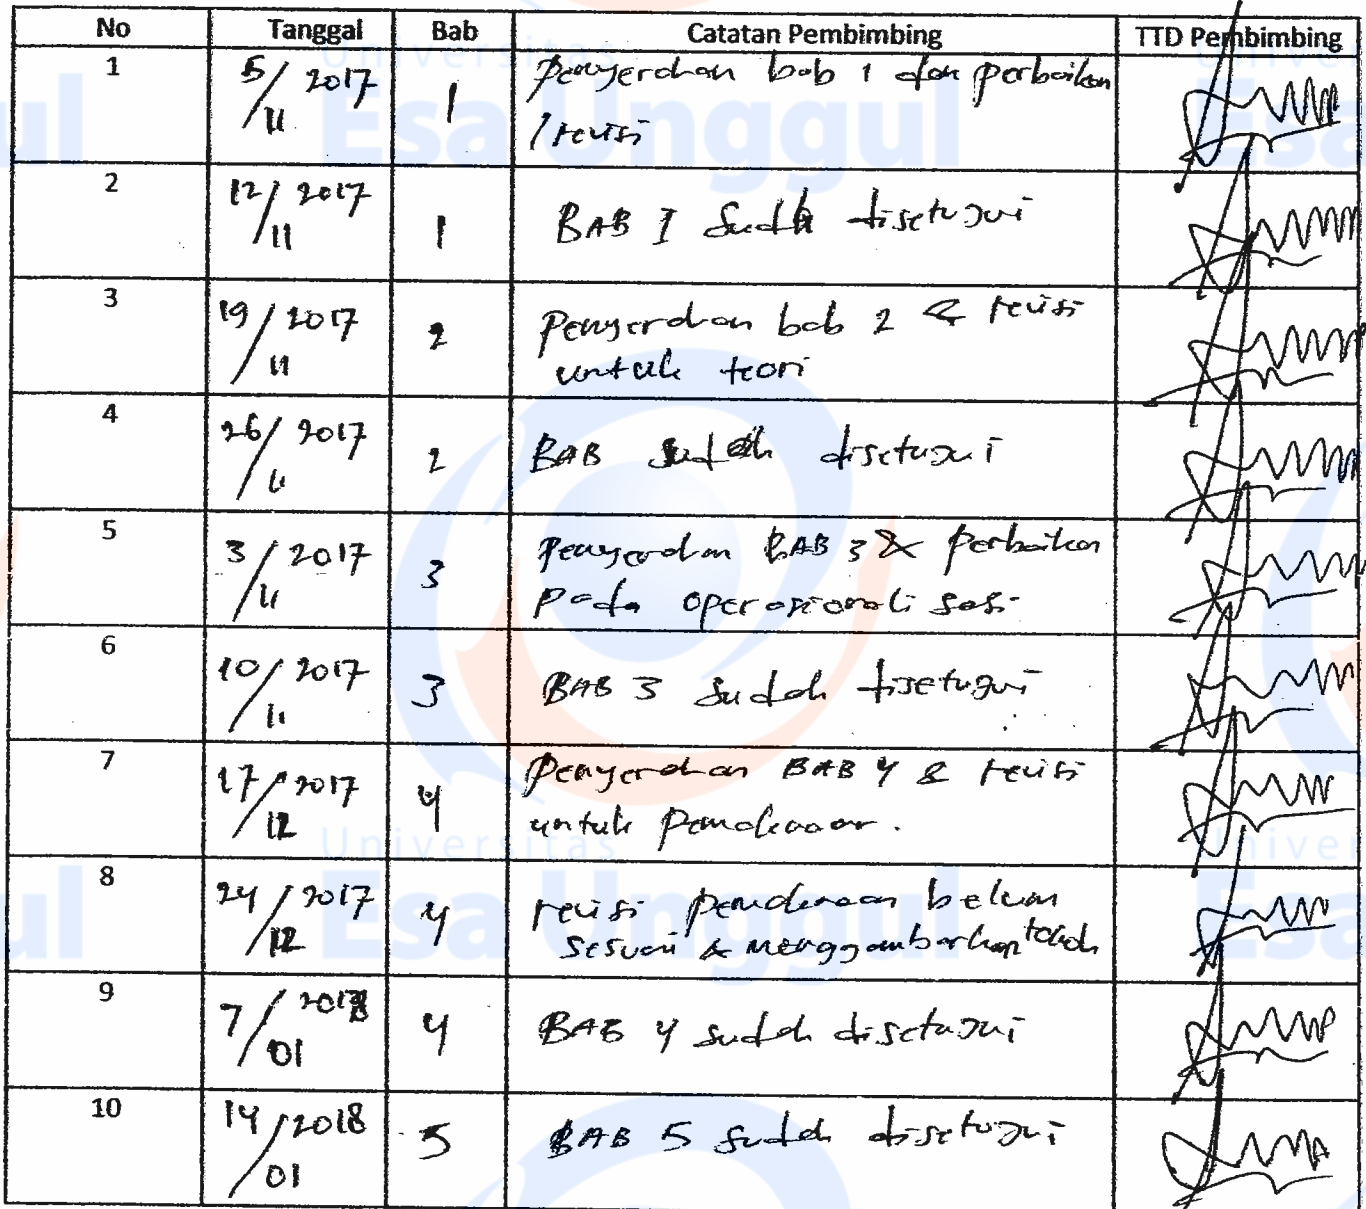 No Tanggal Bab Catatan Pembimbing TTD Pembimbing
1 5/11 2017 1 Penyerahan bab 1 dan perbaikan
/revisi
2 12/11 2017 1 BAB I sudah disetujui
3 19/11 2017 2 Penyerahan bab 2 & revisi
untuk teori
4 26/11 2017 2 BAB sudah disetujui
5 3/11 2017 3 Penyerahan BAB 3 & perbaikan
pada operasionalisasi
6 10/11 2017 3 BAB 3 sudah disetujui
7 17/12 2017 4 Penyerahan BAB 4 & revisi
untuk
8 24/12 2017 4 revisi belum
sesuai & menggambarkan tokoh
9 7/01 2018 4 BAB 4 sudah disetujui
10 14/01 2018 5 BAB 5 sudah disetujui
Universitas
Esa Unggul
Universitas
Esa Unggul